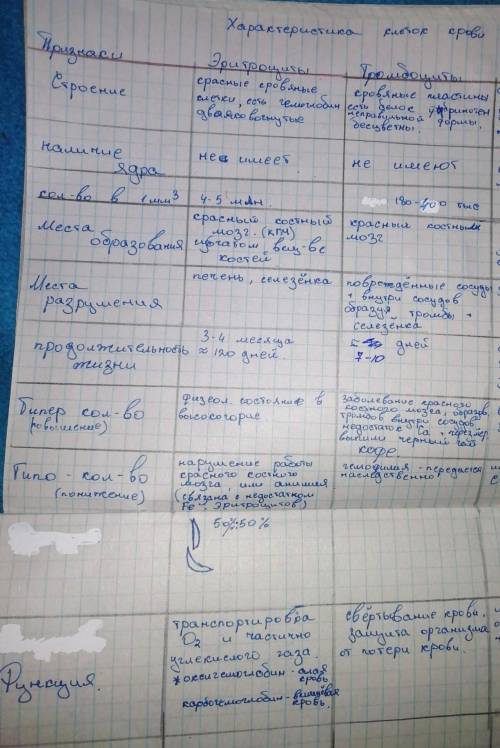 Характеристика клеток крови
Признаки
Эритроциты
Тромбоциты
Строение
красные кровяные
клетки, есть гемоглобин
двояковогнутые
кровяные пластины
есть белок
неправильной формы.
бесцветны.
наличие
ядра
не имеет
не имеют
кол-во в 1 мм³
4-5 млн.
180-400 тыс
Места
образования
красный костный
мозг. (ККМ)
вещ-ве
костей
красный костный
мозг
Места
разрушения
печень, селезёнка
повреждённые сосуды
+ внутри сосудов
образуя тромбы +
селезёнка
продолжительность
жизни
3-4 месяца
≈ 120 дней.
дней
7-10
Гипер кол-во
(повышение)
физеол. состояние в
высокогорие
Заболевание красного
костного мозга, образов.
тромбов внутри сосудов
недостаток Ca,
выпили черный чай
кофе.
Гипо - кол-во
(понижение)
нарушение работы
красного костного
мозга, или анимия
(связана с недостатком
Fe - эритроцитов)
гемофилия - передаётся
наследственно
50%:50%
Функция.
транспортировка
O₂ и частично
углекислого газа.
оксигемоглобин - алая
кровь
карбогемоглобин - вишнёвая
кровь.
свёртывание крови.
защита организма
от потери крови.